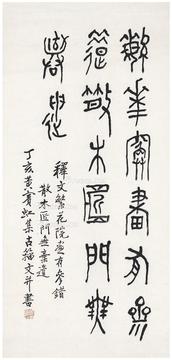 繁花院盡有參
錯散木匠門無
棄遺
釋文繁花院盡有參錯
散木匠門無棄遺
丁亥黃賓虹集古籀文并書